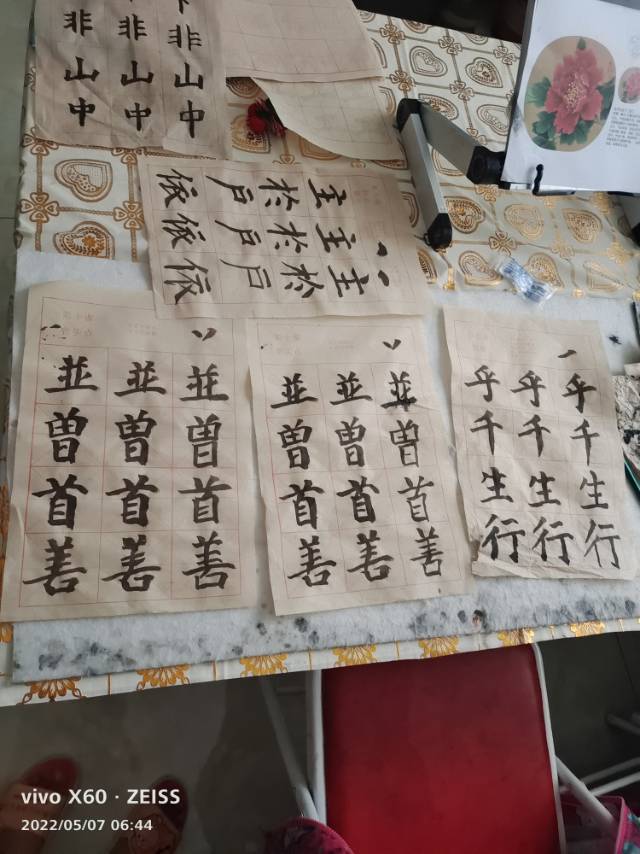 非 非 非
山 山 山
中 中 中
依 户 於 主
依 户 於 主
依 户 於 主
丷
並 並 並
曾 曾 曾
首 首 首
善 善 善
丷
並 並 並
曾 曾 曾
首 首 首
善 善 善
乎 乎 乎
千 千 千
生 生 生
行 行 行
vivo X60 · ZEISS
2022/05/07 06:44